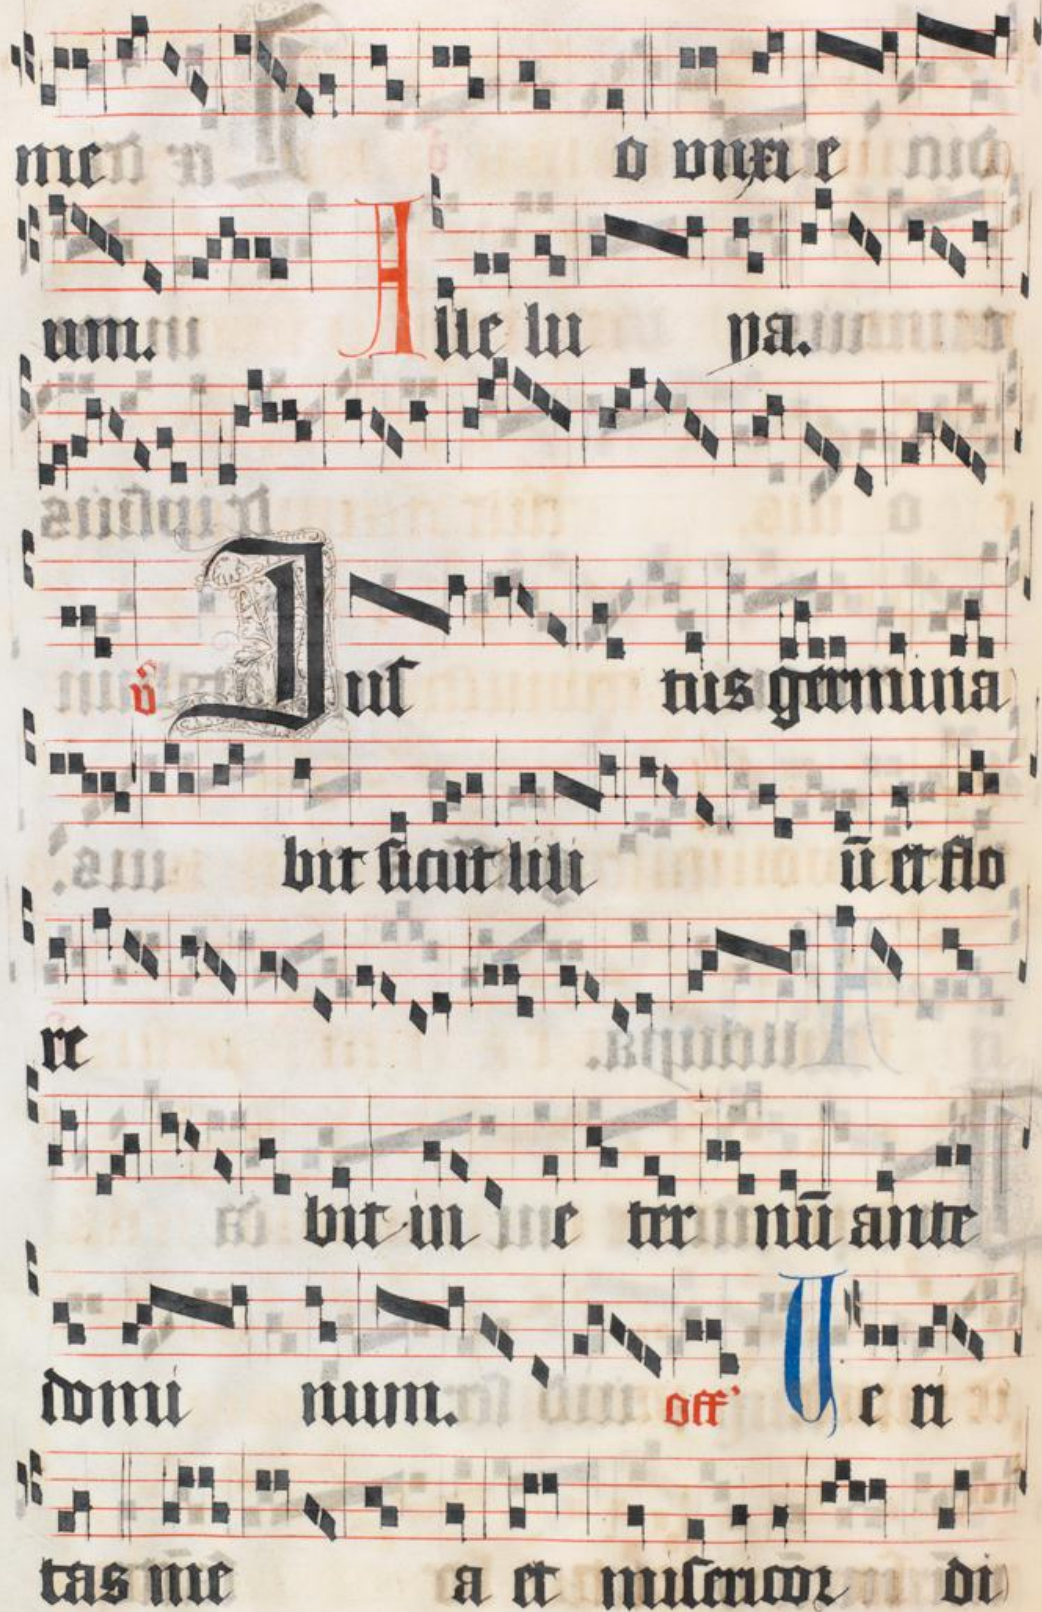 me o unxi e
um. Alle lu ya.
v̓ Jus tus germina
bit sicut lili ū et flo
re
bit in e ter nū ante
domi num. off' Ue ri
tas me a et misericor di